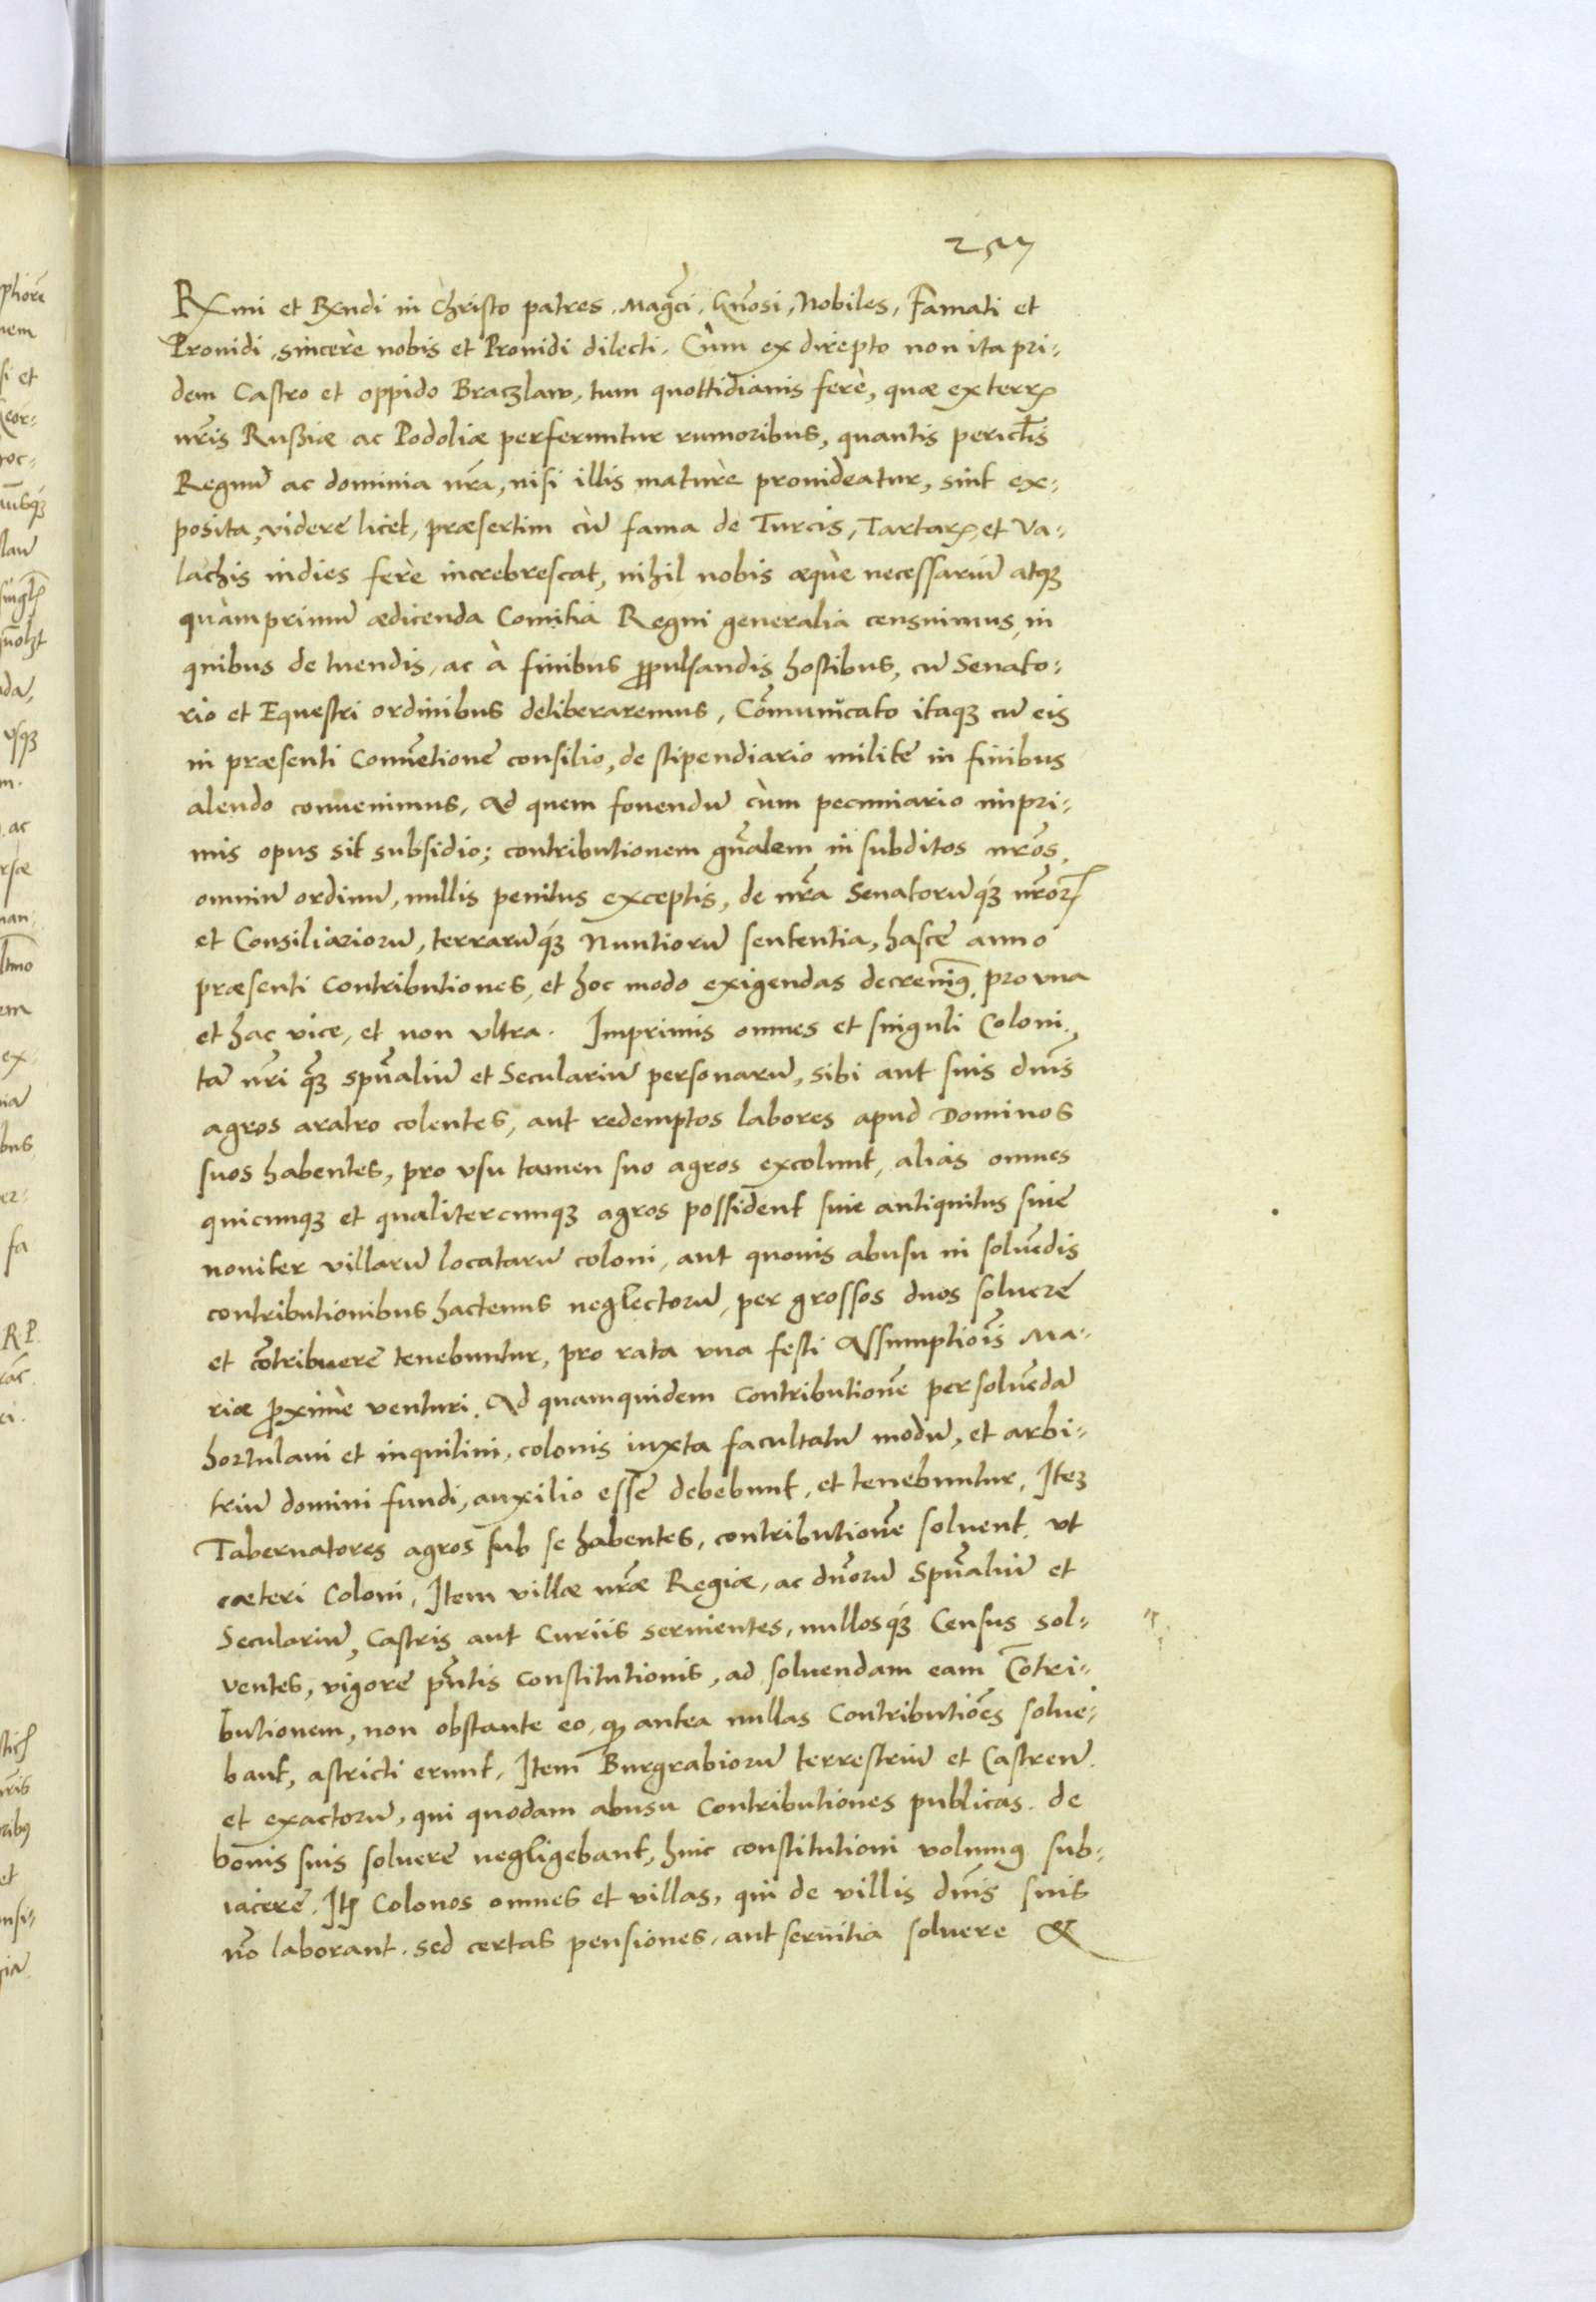 257
Rx̃mi et Rx̃ndi in Christo patres. Mag̃ci, Gñosi, Nobiles, Famati et
Prouidi, sincerè nobis et Prouidi dilecti. Cùm ex direpto non ita pri-
dem Castro et oppido Braczlaw, tum quottidianis ferè, quæ ex terrꝝ
nr̃is Rußiæ ac Podoliæ perferuntur rumoribus, quantis pericl̃is
Regnũ ac dominia nr̃a, nisi illis maturè prouideatur, sint ex-
posita, videre licet, præsertim cũ fama de Turcis, Tartarꝝ, et Va-
lachis indies ferè increbrescat, nihil nobis æquè necessariũ atqꝫ
quàmprimũ ædicenda Comitia Regni generalia censuimus, in
quibus de tuendis, ac à finibus ꝓpulsandis hostibus, cũ Senato-
rio et Equestri ordinibus deliberaremus, Cõmunicato itaqꝫ cũ eis
in præsenti Conuẽtione consilio, de stipendiario milite in finibus
alendo conuenimus, Ad quem fouendũ cùm pecuniario inpri-
mis opus sit subsidio; contributionem gñalem in subditos nr̃os,
omniũ ordinũ, nullis penitus exceptis, de nr̃a Senatorũqꝫ nr̃orꝝ
et Consiliariorũ, terrarũqꝫ Nuntiorũ sententia, hasce anno
præsenti Contributiones, et hoc modo exigendas decreuim9, pro vna
et hac vice, et non vltra. Imprimis omnes et singuli Coloni,
tã nr̃i qꝫ̃ spũaliũ et Seculariũ personarũ, sibi aut suis dñis
agros aratro colentes, aut redemptos labores apud Dominos
suos habentes, pro vsu tamen suo agros excolunt, alias omnes
quicunqꝫ et qualitercunqꝫ agros possident siue antiquitus siue
nouiter villarũ locatarũ coloni, aut quouis abusu in soluẽdis
contributionibus hactenus neglectorũ, per grossos duos soluere
et cõtribuere tenebuntur, pro rata vna festi Assumptiõis Ma-
riæ ꝓximè venturi. Ad quamquidem Contributionẽ persoluẽdã
hortulani et inquilini, colonis iuxta facultatũ modũ, et arbi-
triũ domini fundi, auxilio esse debebunt, et tenebuntur, Iteꝫ
Tabernatores agros sub se habentes, contributionẽ soluent, vt
cæteri Coloni, Item villæ nr̃æ Regiæ, ac dñorũ Spũaliũ et
Seculariũ, Castris aut Curiis seruientes, nullosqꝫ Census sol-
ventes, vigore pñtis Constitutionis, ad soluendam eam Cõtri-
butionem, non obstante eo, qꝫ antea nullas Contributiões solue-
bant, astricti erunt. Item Burgrabiorũ terrestriũ et Castreñ.
et exactorũ, qui quodam abusu Contributiones publicas. de
bonis suis soluere negligebant, huic constitutioni volum9 sub-
iacere. Itꝫ Colonos omnes et villas, qui de villis dñis suis
nõ laborant. sed certas pensiones, aut seruitia soluere &